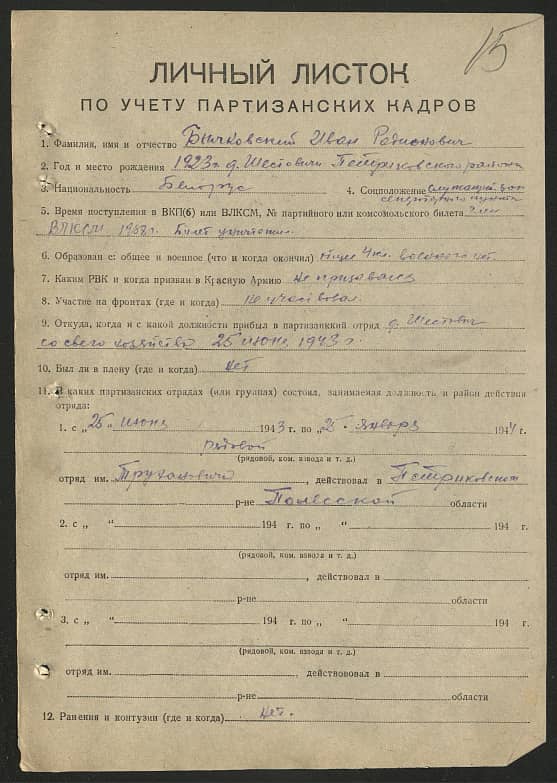 15
ЛИЧНЫЙ ЛИСТОК
ПО УЧЕТУ ПАРТИЗАНСКИХ КАДРОВ
1. Фамилия, имя и отчество Бычковский Иван
2. Год и место рождения 1923 г. д. Шестовичи Петриковского района
3. Национальность Белорус 4. Соцположение служащий
5. Время поступления в ВКП(б) или ВЛКСМ, № партийного или комсомольского билета член
ВЛКСМ Билет уничтожил
6. Образован е: общее и военное (что и когда окончил) 4 кл. военного нет
7. Каким РВК и когда призван в Красную Армию не призывался
8. Участие на фронтах (где и когда) не участвовал
9. Откуда, когда и с какой должности прибыл в партизанский отряд д. Шестовичи
со своего хозяйства 25 июня 1943 г.
10. Был ли в плену (где и когда) нет
11. В каких партизанских отрядах (или группах) состоял, занимаемая должность и район действия
отряда:
1. с „25“ июня 1943 г. по „25“ января 1944 г.
рядовой
(рядовой, ком. взвода и т. д.)
отряд им. , действовал в Петриковском
р-не Полесской области
2. с „ “ 194 г. по „ “ 194 г.
(рядовой, ком. взвода и т. д.)
отряд им. , действовал в
р-не области
3. с „ “ 194 г. по „ “ 194 г.
(рядовой, ком. взвода и т. д.)
отряд им. , действововал в
р-не области
12. Ранения и контузии (где и когда) нет.